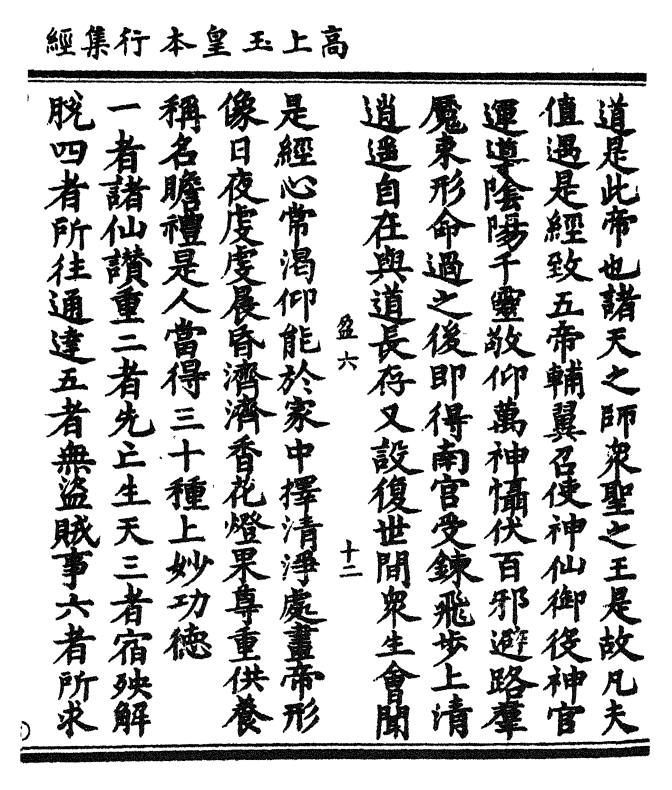 高上玉皇本行集經
道是此帝也諸天之師衆聖之王是故凡夫
值遇是經致五帝輔翼召使神仙御後神官
運導陰陽千靈敬仰萬神懾伏百邪避路羣
魔束形命過之後即得南宮受鍊飛步上清
逍遥自在與道長存又設復世間衆生會聞
盈六 十二
是經心常渴仰能於家中擇清淨處畫帝形
像日夜虔虔晨昏濟濟香花燈果尊重供養
稱名瞻禮是人當得三十種上妙功德
一者諸仙讃重二者先亡生天三者宿殃解
脫四者所往通達五者無盜賊事六者所求